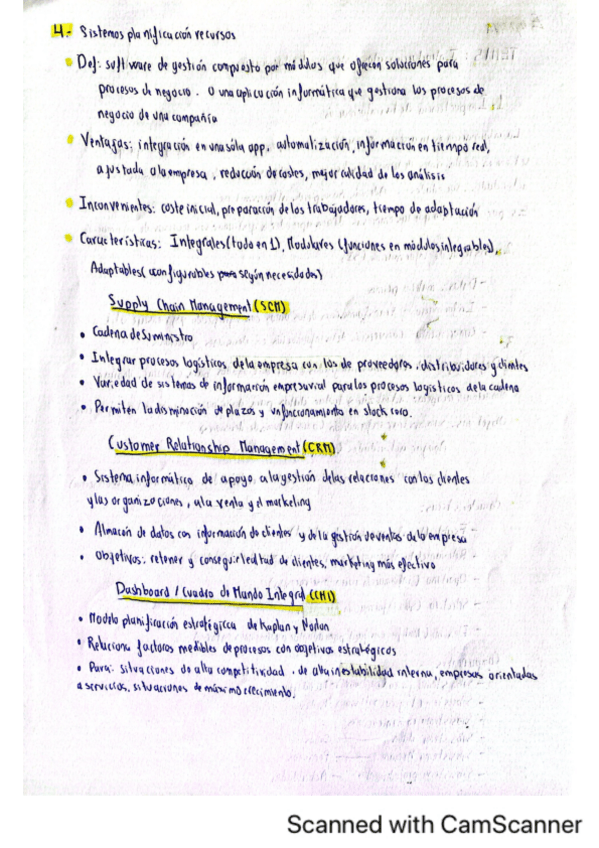 4.- Sistemas planificación recursos
• Def: software de gestión compuesto por módulos que ofrecen soluciones para
procesos de negocio. O una aplicación informática que gestiona los procesos de
negocio de una compañía
• Ventajas: integración en una sola app, automatización, información en tiempo real,
ajustada a la empresa, reducción de costes, mejor calidad de los análisis
• Inconvenientes: coste inicial, preparación de los trabajadores, tiempo de adaptación
• Características: Integrales (todo en 1), Modulares (funciones en módulos integrables),
Adaptables (configurables según necesidades)
Supply Chain Management (SCM)
• Cadena de suministro
• Integrar procesos logísticos de la empresa con los de proveedores, distribuidores y clientes
• Variedad de sistemas de información empresarial para los procesos logísticos de la cadena
• Permiten la disminución de plazos y un funcionamiento en stock cero.
Customer Relationship Management (CRM)
• Sistema informático de apoyo a la gestión de las relaciones con los clientes
y las organizaciones, a la venta y el marketing
• Almacén de datos con información de clientes y de la gestión de ventas de la empresa
• Objetivos: retener y conseguir lealtad de clientes, marketing más efectivo
Dashboard / Cuadro de Mando Integral (CMI)
• Modelo planificación estratégica de Kaplan y Norton
• Relaciona factores medibles de procesos con objetivos estratégicos
• Para: situaciones de alta competitividad, de alta inestabilidad interna, empresas orientadas
a servicios, situaciones de máximo crecimiento.
Scanned with CamScanner